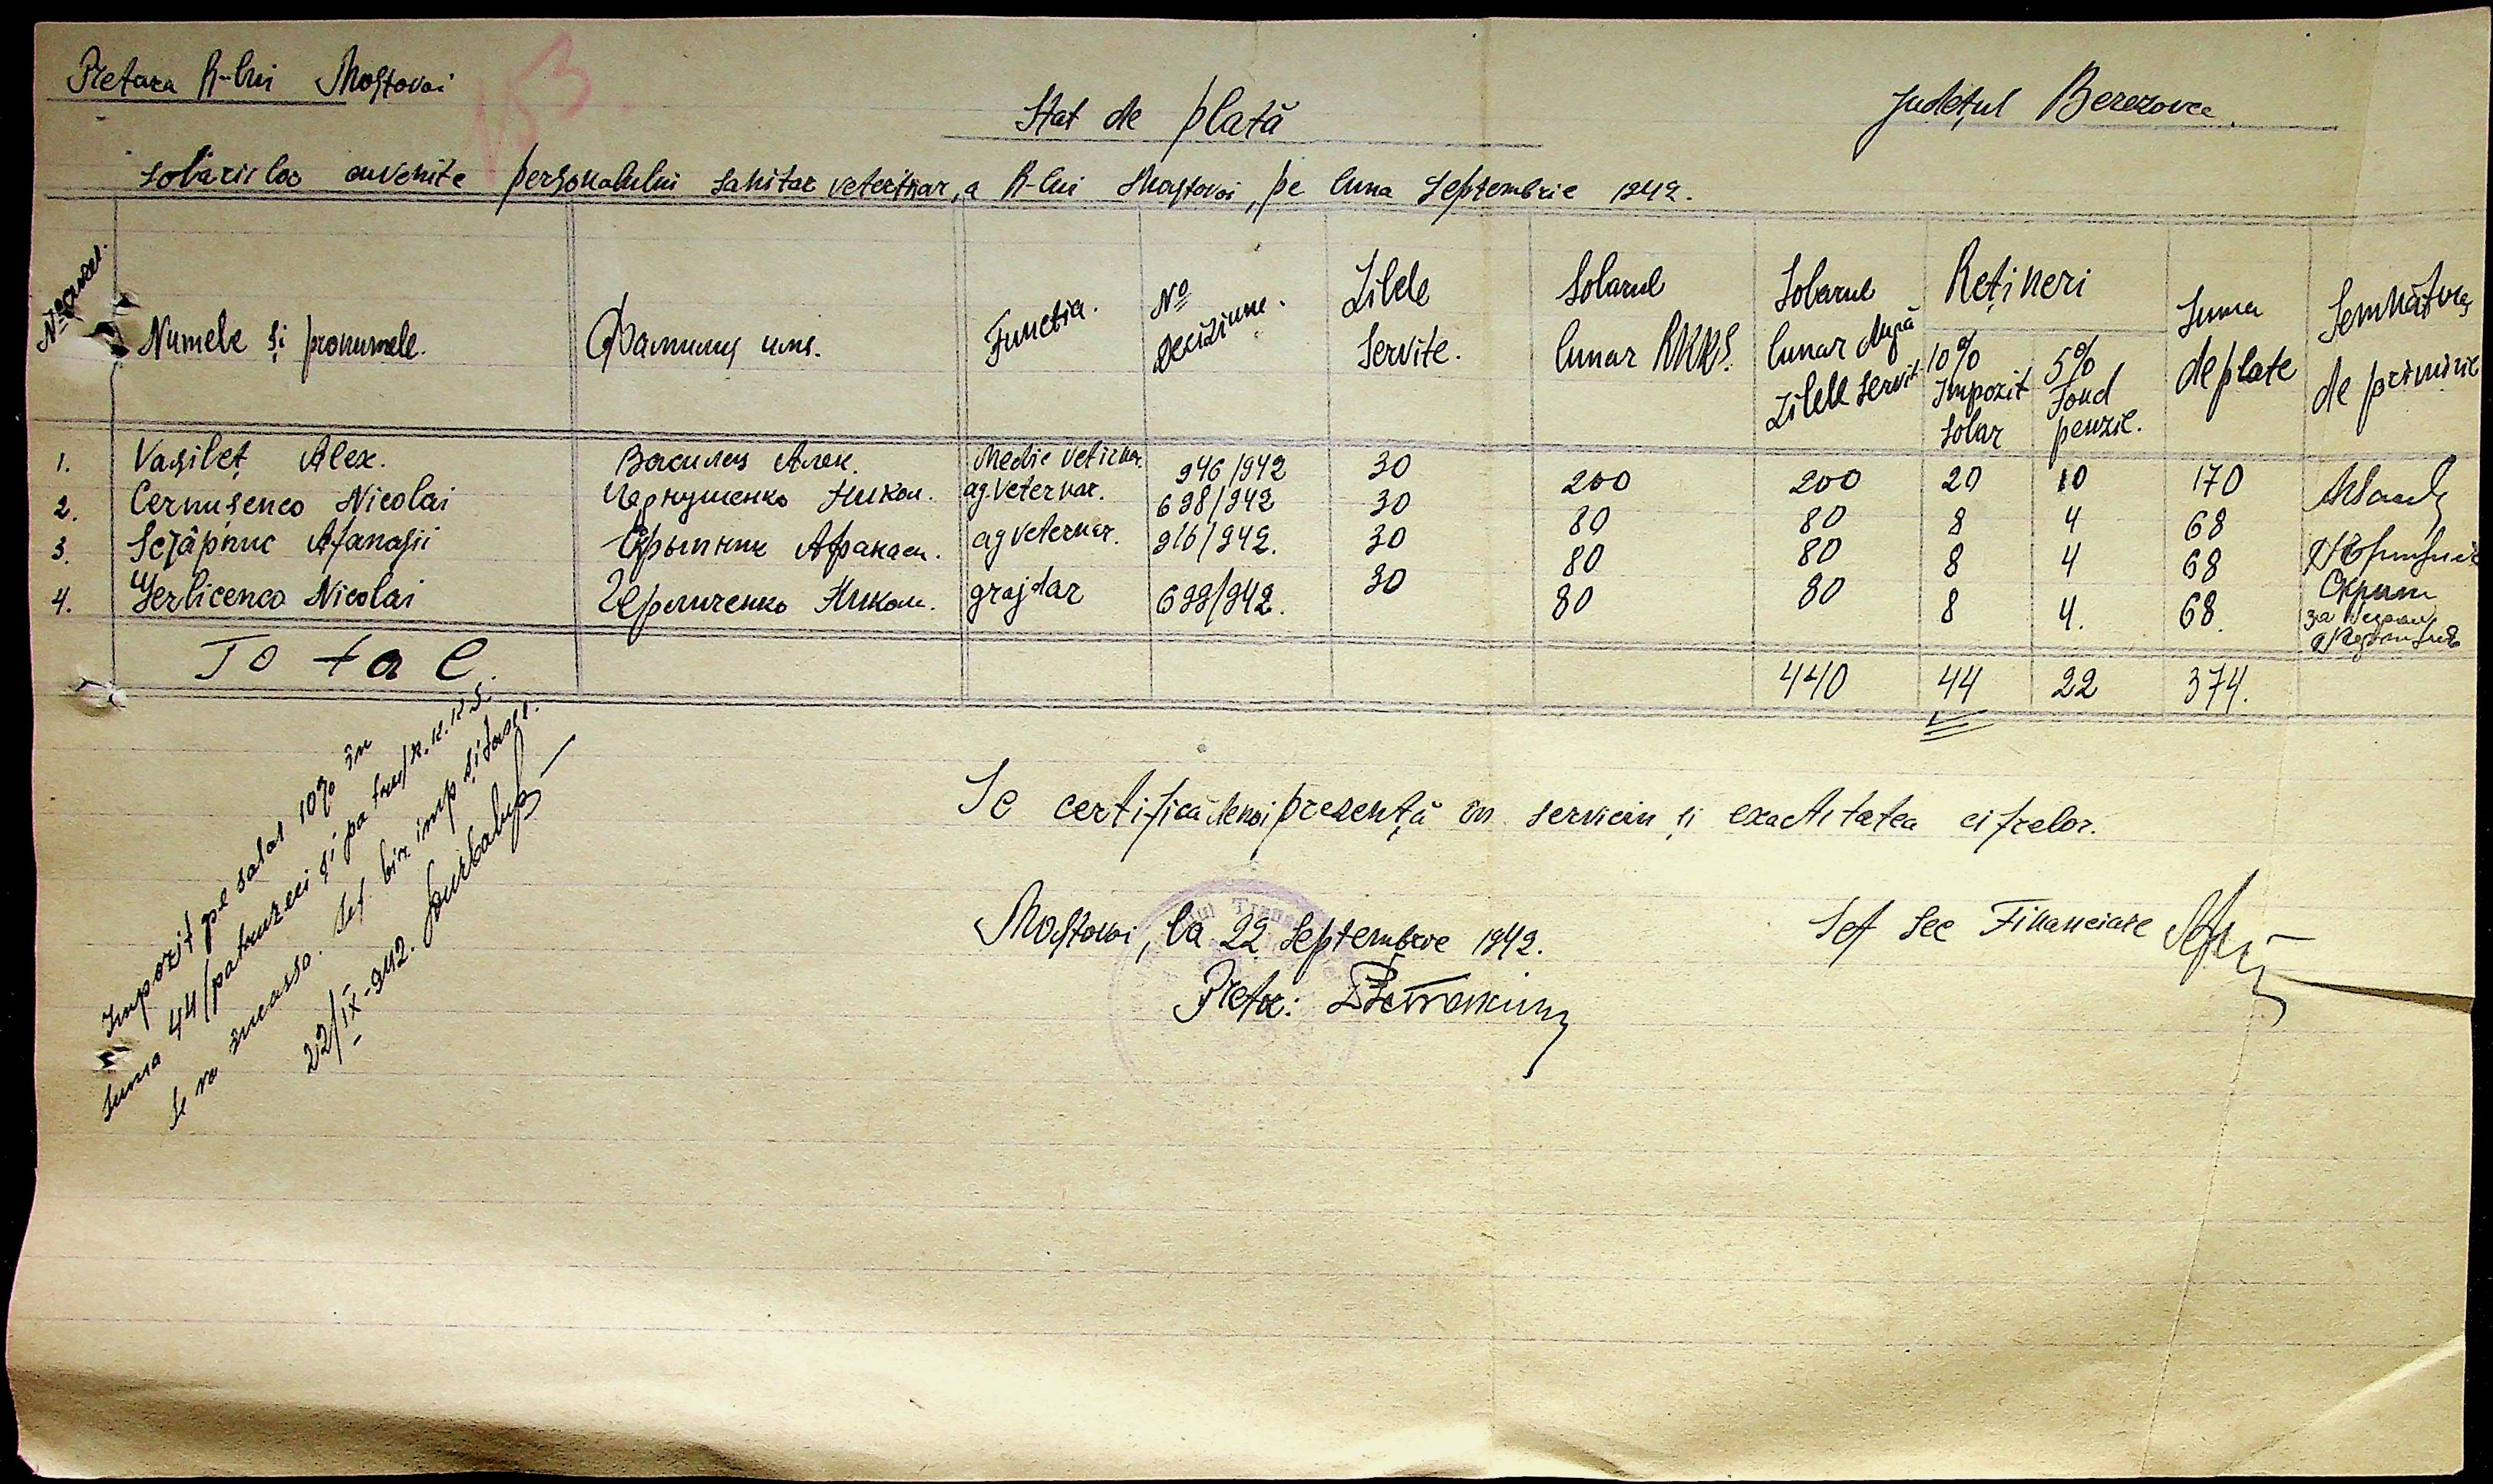 Pretura R-lui Mostovoi
153
Județul Berezovca.
Stat de plată
solariilor cuvenite personalului sanitar veterinar, a R-lui Mostovoi, pe luna Septembrie 1942.
Numele și pronumele. Фамилия имя. Functia. Nº Deciziune. Zilele Servite. Solarul lunar RKKS. Solarul lunar după zilele servit Rețineri 10% Impozit solar 5% Fond penzie. Suma de plate Semnătura de primirie
1. Vasileț Alex. Василец Алек. Medic vetirnar. 946/942 30 200 200 20 10 170
2. Cernușenco Nicolai Чернушенко Никол. ag. Veternar. 698/942 30 80 80 8 4 68
3. Scrâpnic Afanasii Скрыпник Афанаси. ag veternar. 916/942. 30 80 80 8 4 68
4. Gerlicenco Nicolai Герличенко Никол. grajdar 699/942. 30 80 80 8 4. 68.
Total. 440 44 22 374.
Impozit pe salar 10% în
Suma 44/patruzeci și patru/R.K.K.S.
Se va încassa. Șef. bir. imp și taxe.
22/IX-942.
Se certifică denoi prezență în serviciu și exactitatea cifrelor.
Mostovoi, la 22 Septembrie 1942.
Șef Sec Financiare
Pretor: